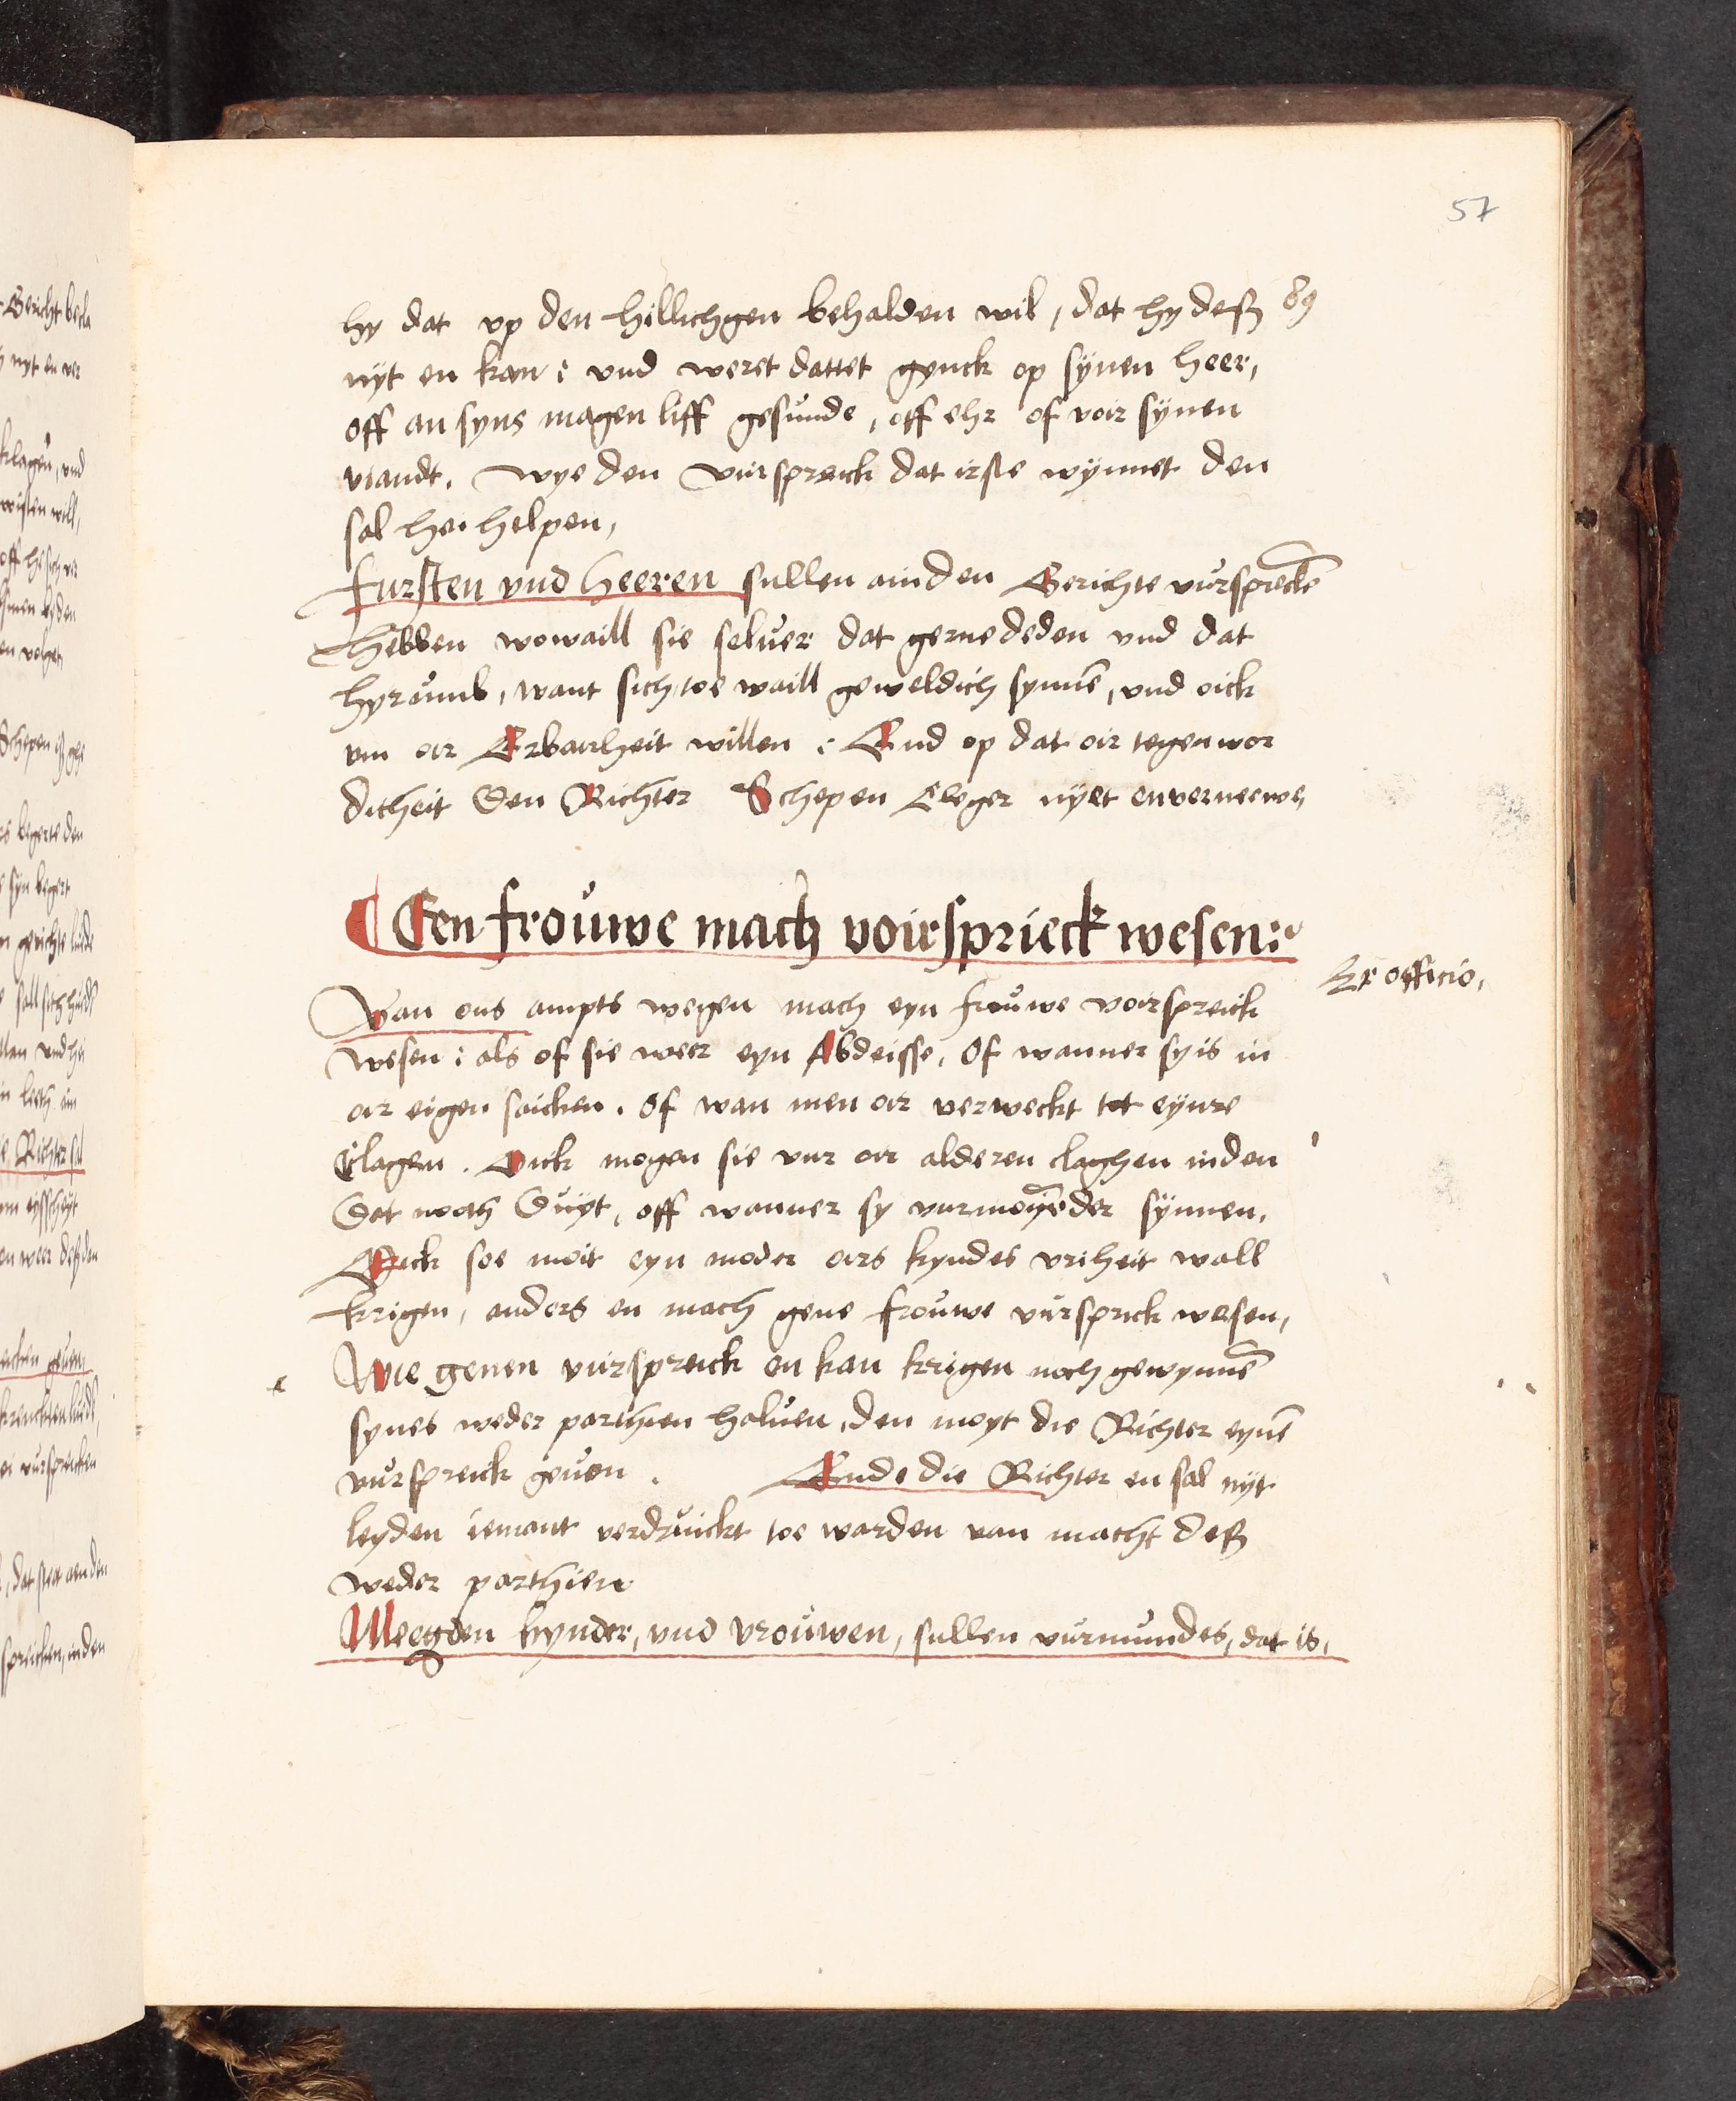 57
89
hy dat vp den hillichgen behalden wil, dat hy deß
nÿt en kan: vnd weret dattet genck op sÿnen heer,
off an syns magen liff gesunde, off ehr of voir sÿnen
viandt. wye den vurspreick dat irste wÿnnet den
sal hei helpen,
Fursten vnd heeren sullen ain den Gerichte vursprecke̅
hebben wowaill sie seluer dat gerne deden vnd dat
hyrumb, want sich toe waill geweldich synne̅, vnd oick
vm oir Erbairheit willen: End op dat oir tegenwor
dicheit den Richter Schepen Cleger nÿet
Een frouwe mach voirsprieck wesen:
Ex officio,
Van ons ampts wegen mach eyn frouwe voirspreick
wesen: als of sie weer eyn Abdeisse, of wanner sy is in
oir eigen saicken. of wan men oir verweckt tot eÿnre
Clagen. Oick mogen sie vur oir alderen claghen in den
dat noth duÿt, off wanner sy sÿnnen.
Oick soe moit eyn moder oirs kyndes vriheit wall
krigen, anders en mach gene frouwe vursprick wesen,
Wie genen vurspreick en kan krigen noch gewynne̅
synes weder parthien haluen, den moyt die Richter eyne̅
vurspreick geuen. Ende die Richter en sal nÿt
leyden iemant verdruickt toe warden van macht deß
weder parthien
Meegden kynder, vnd vrouwen, sullen vurmundes, dat is,